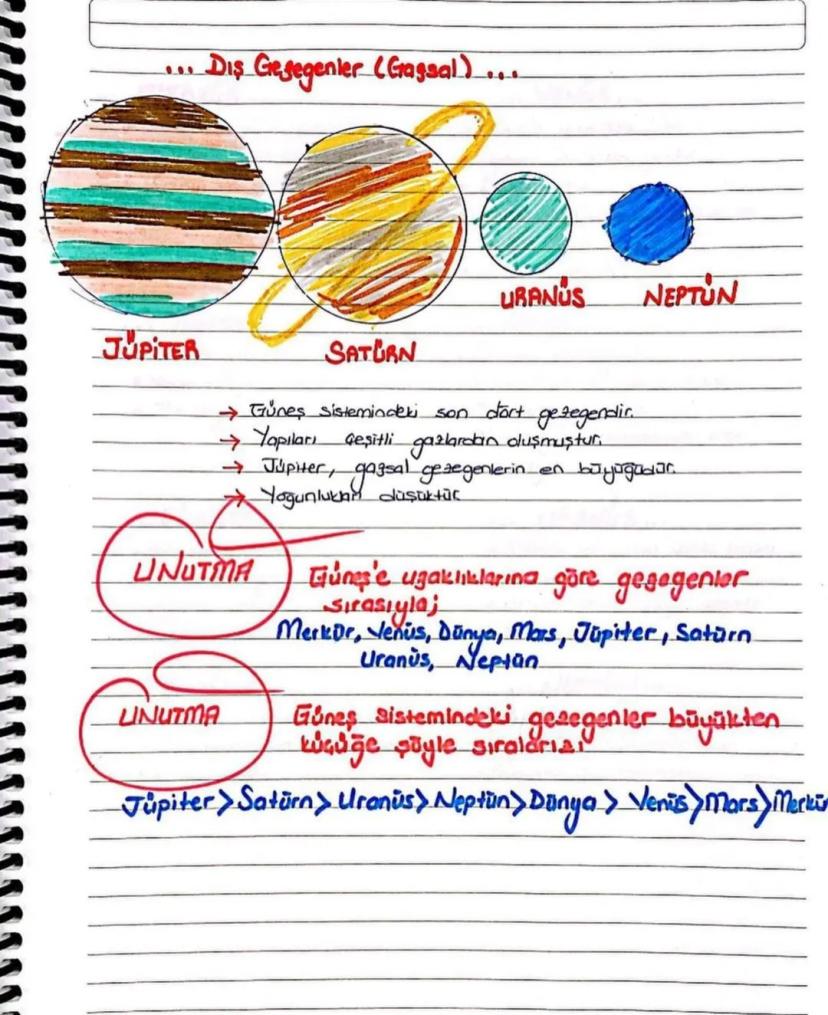 ... Dış Gezegenler (Gazsal) ...
URANÜS NEPTÜN
JÜPİTER SATÜRN
→ Güneş sistemindeki son dört gezegendir.
→ Yapıları çeşitli gazlardan oluşmuştur.
→ Jüpiter, gazsal gezegenlerin en büyüğüdür.
→ Yoğunlukları düşüktür
UNUTMA
Güneş'e uzaklıklarına göre gezegenler
sırasıyla;
Merkür, Venüs, Dünya, Mars, Jüpiter, Satürn
Uranüs, Neptün
UNUTMA
Güneş sistemindeki gezegenler büyükten
küçüğe şöyle sıralarız;
Jüpiter>Satürn>Uranüs>Neptün>Dünya> Venüs>Mars>Merkür